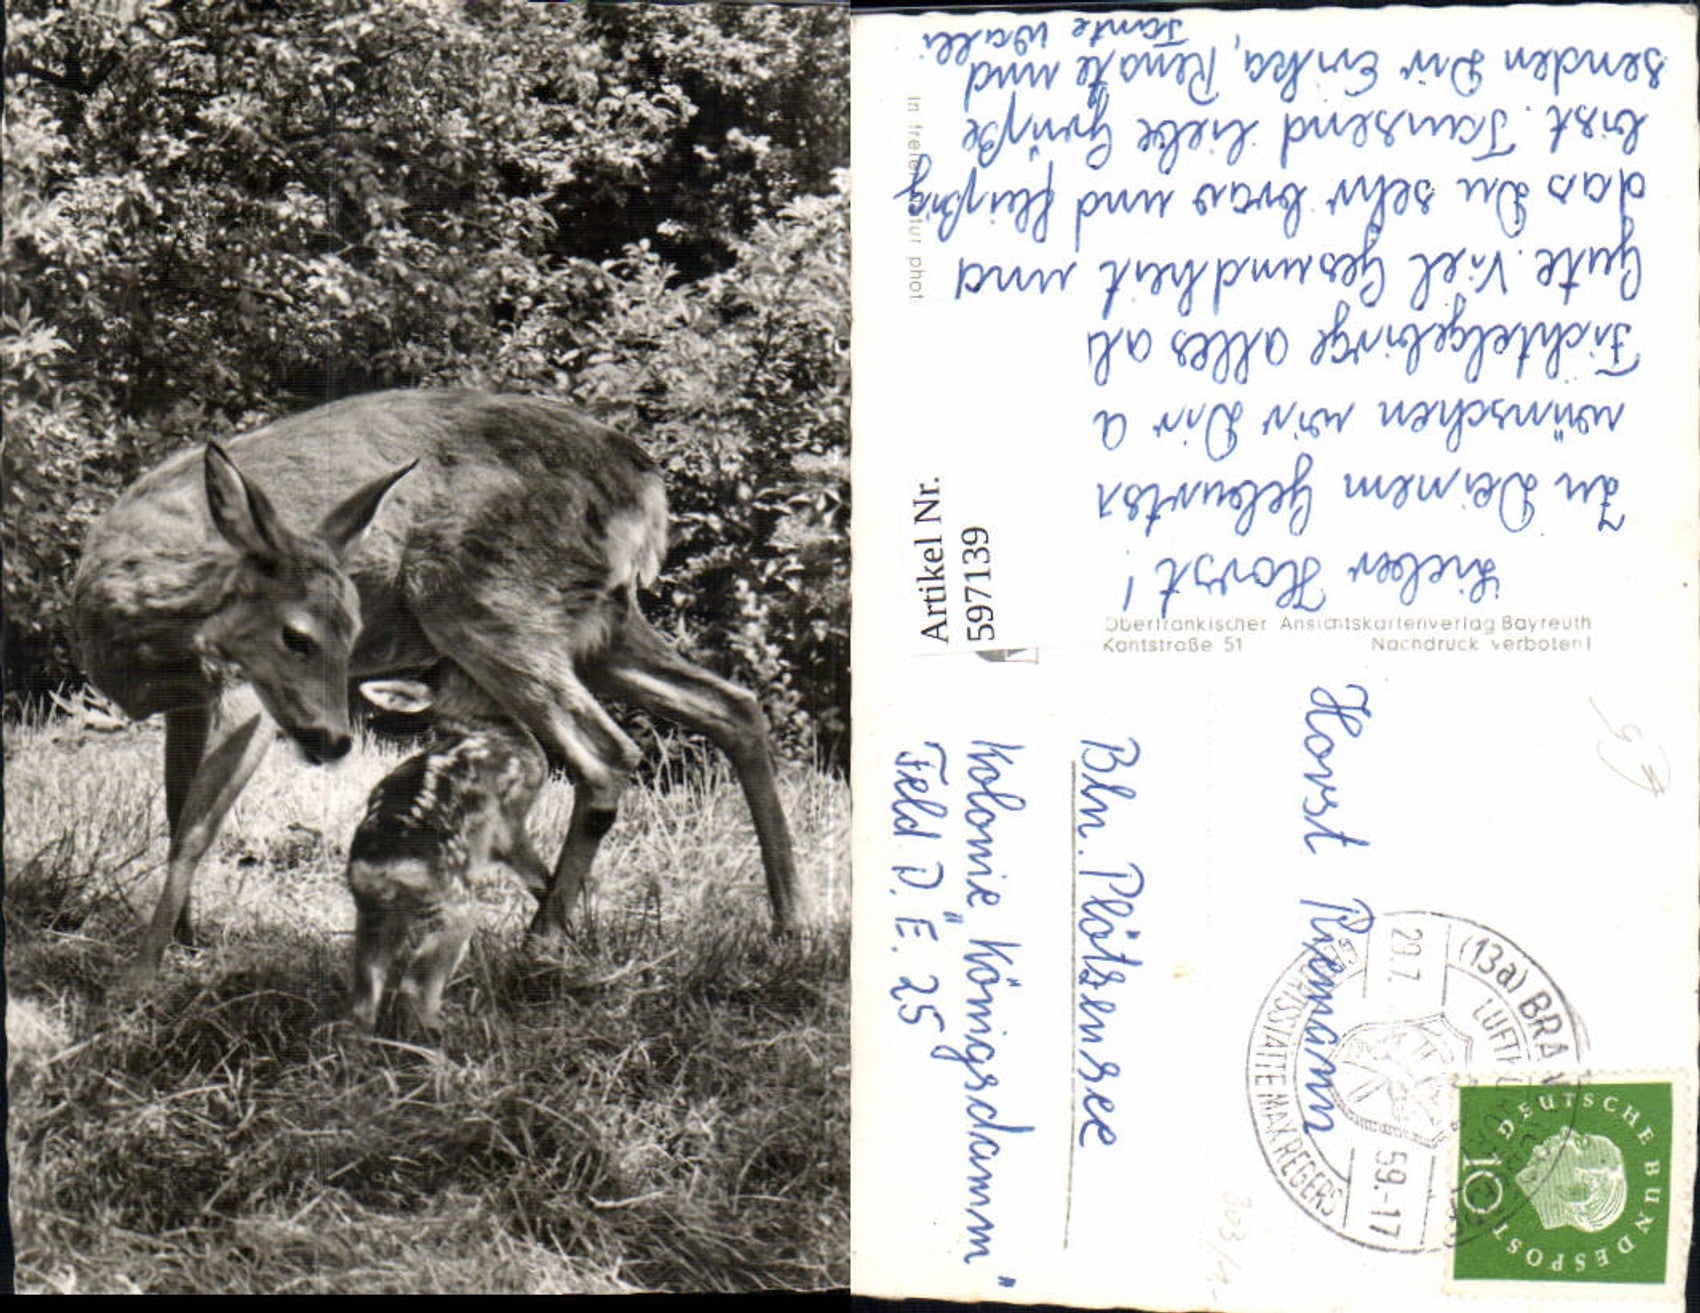 Lieber Horst!
Zu Deinem Geburtst
wünschen wir Dir a
Fichtelgebirge alles al
Gute. Viel Gesundheit und
das Du sehr brav und fleißig
bist. Tausend liebe Grüße
senden Dir Erika, Renate und
Tante Walli
In freier Natur phot
Artikel Nr.
597139
Oberfränkischer Ansichtskartenverlag Bayreuth
Kantstraße 51 Nachdruck verboten!
Horst
Bln. Plötzensee
Kolonie „Königsdamm"
Feld D. E. 25
(13a) BRA
LUFTK
20.7.
59.-17
GEBURTSSTÄTTE MAX REGERS
DEUTSCHE BUNDESPOST
10